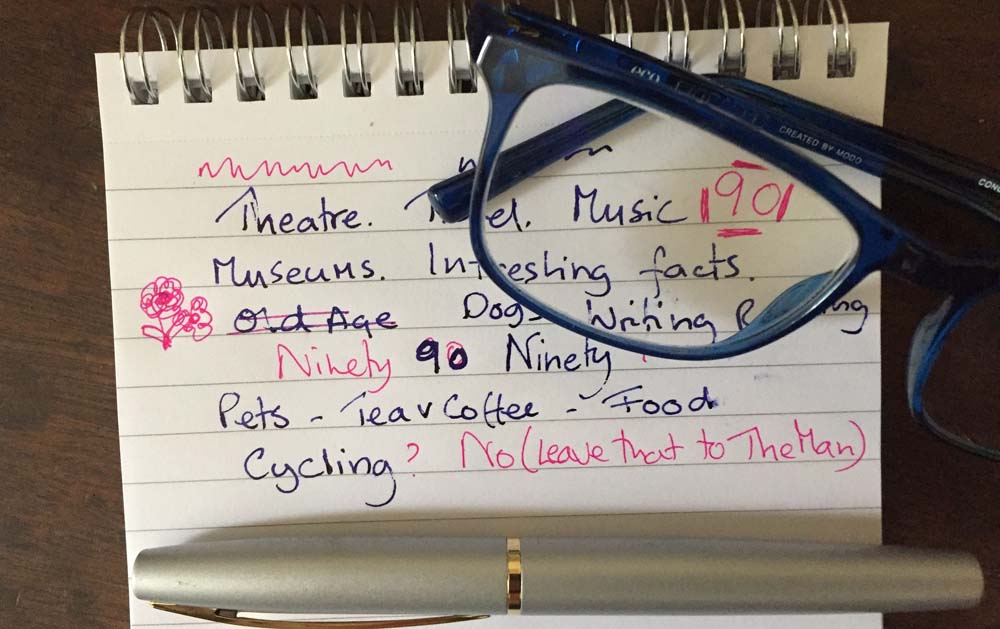 eco
CREATED BY MODO
Theatre. Music 90
Museums. facts.
Old Age Dogs Writing
Ninety 90 Ninety
Pets - Tea v Coffee - Food
Cycling? No (Leave that to The Man)